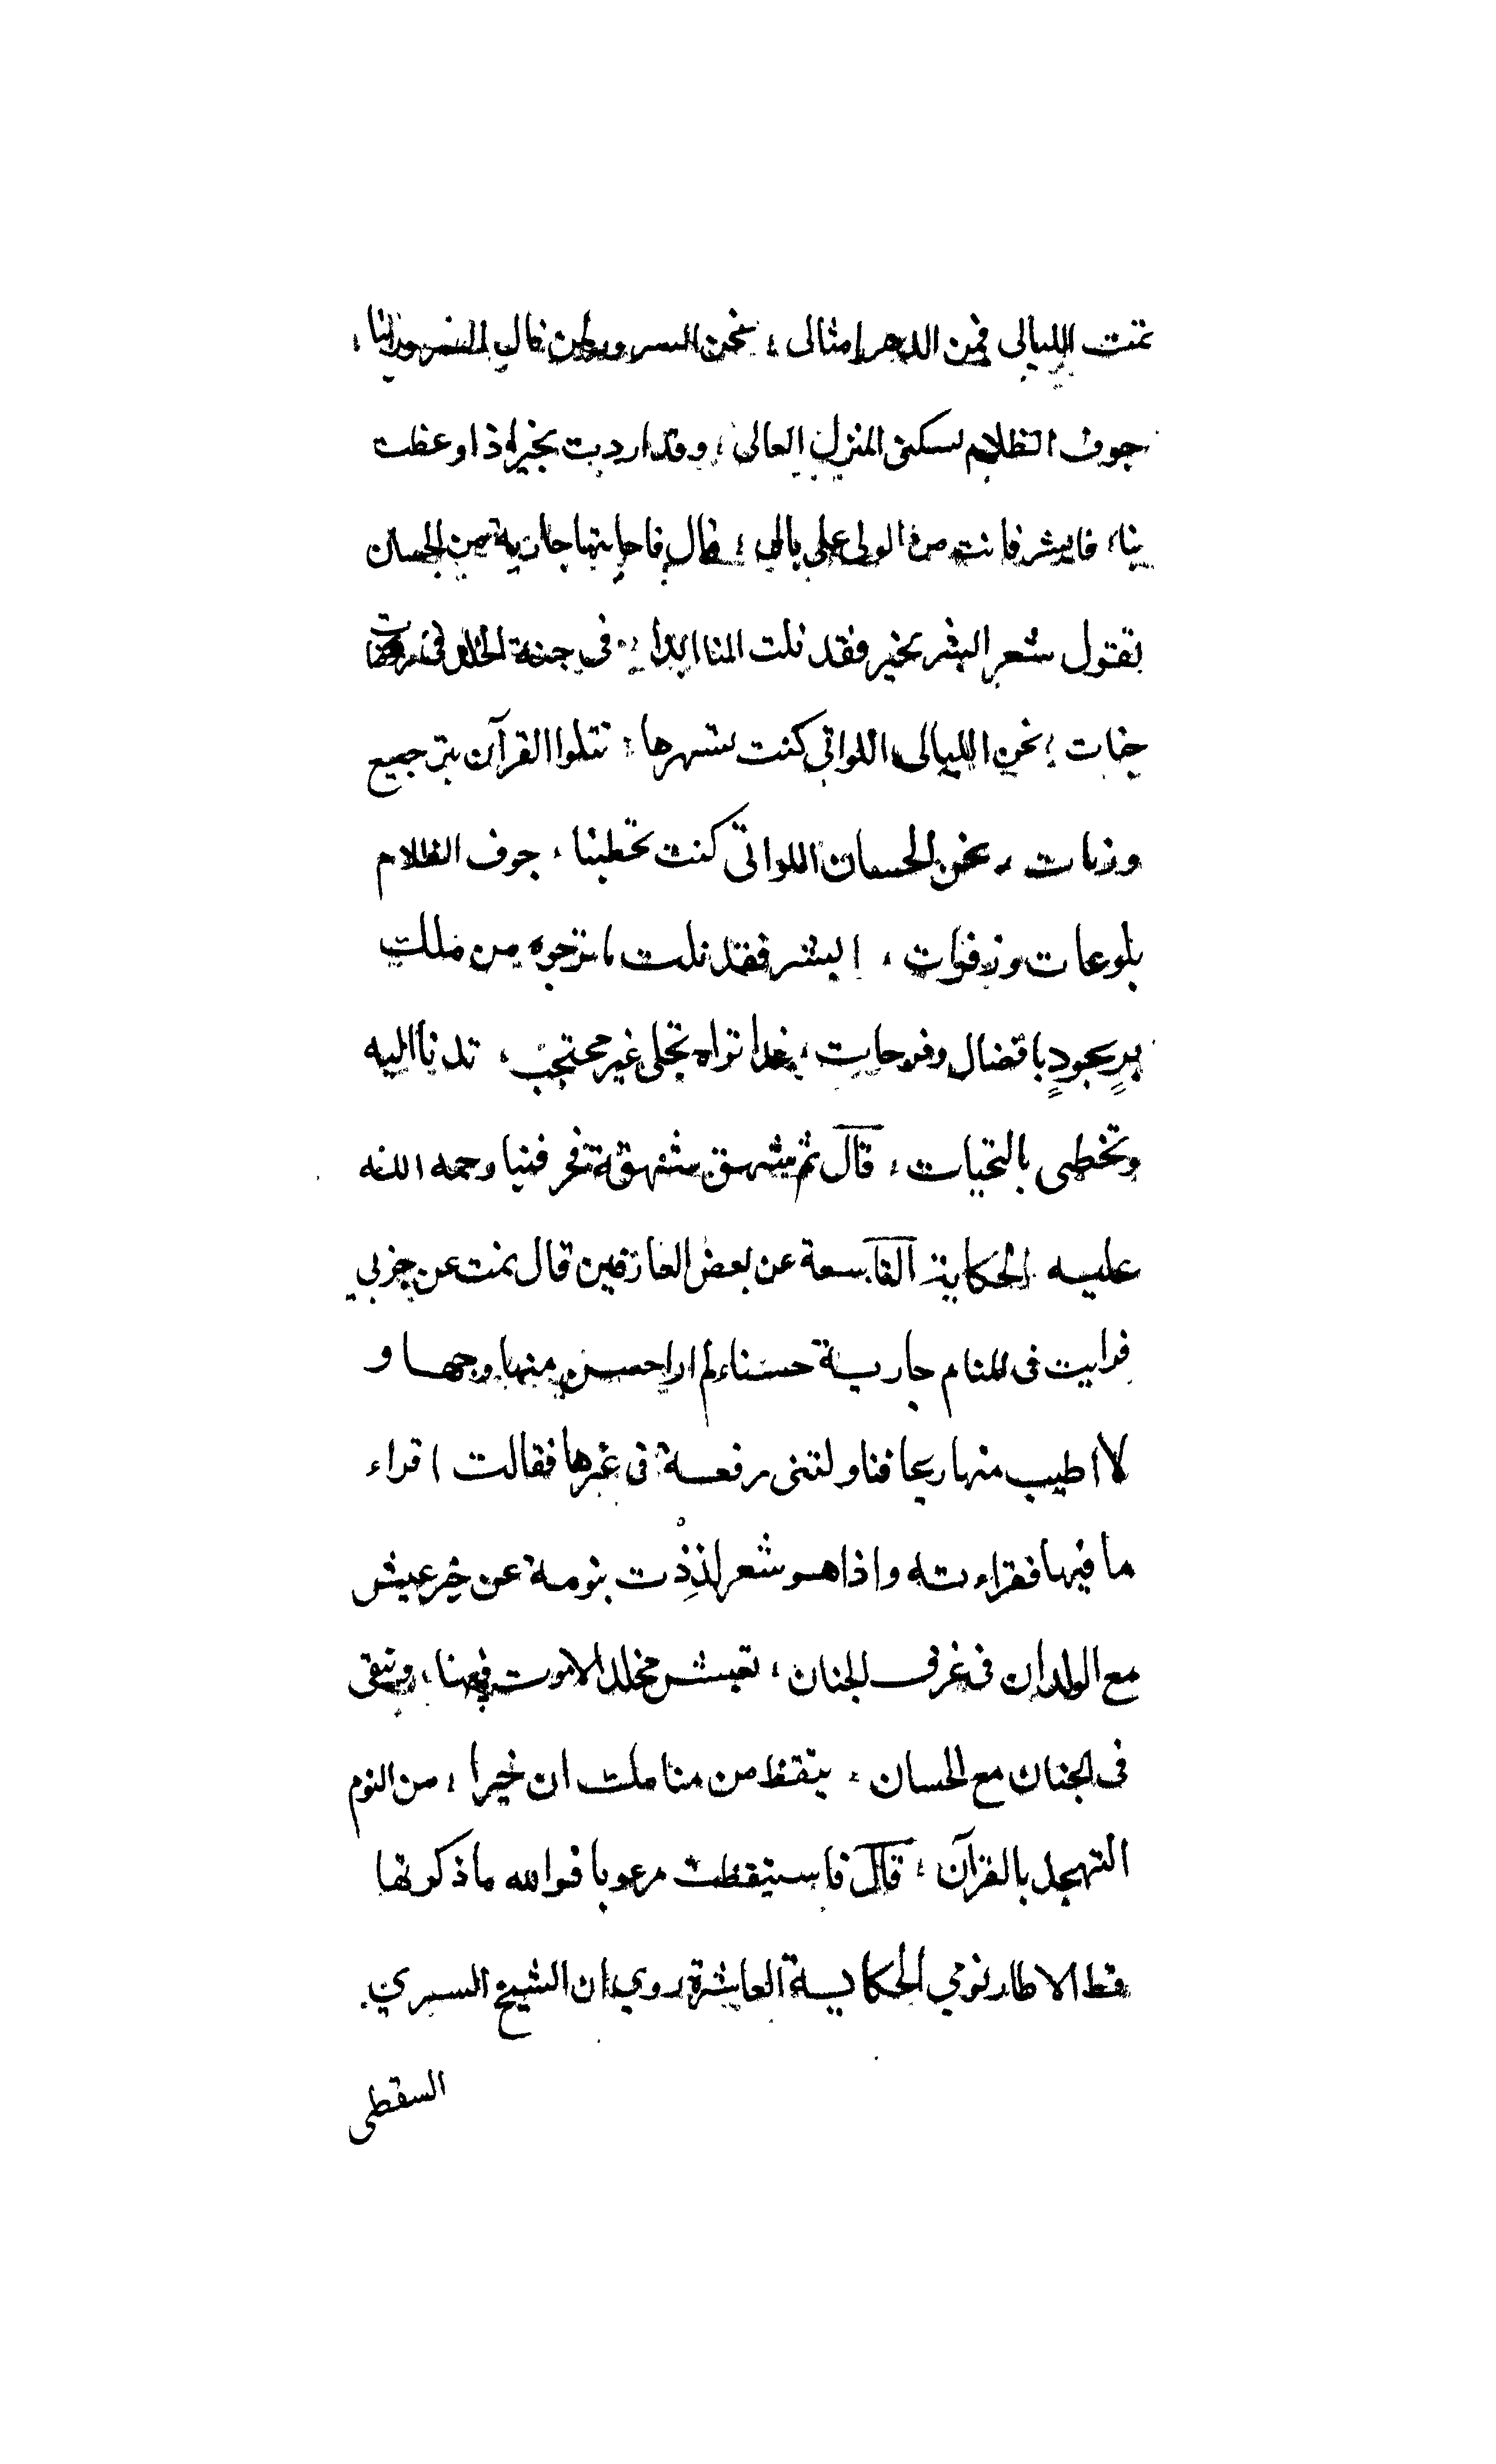 نمت الليالى فهن الدهر امثالى ؛ نحن السرور لمن نال السرور بنا ؛
جوف الظلام لسكنى المنزل العالى ؛ وقد اردت بخير اذا وعظت
بنا ؛ فابشر فانت من المولى على بال ؛ قال فاجابتها جارية من الحسان
تقول شعر ابشر بخير فقد نلت المنا ابدا ؛ فى جنة الخلد فى روضات
جنات ؛ نحن الليالى اللواتى كنت تسهرها ؛ تتلوا القرآن بترجيع
ورنات ؛ نحن الحسان اللواتى كنت تخطبنا ؛ جوف الظلام
بلوعات وزفرات ؛ ابشر فقد نلت ما ترجوه من ملك
برٍ يجودٍ بافضال وفرحات ؛ غدا تراه تجلى غير محتجب ؛ تدنا اليه
وتحظى بالتحيات ؛ قال ثم شهق شهقة فخر ميتا رحمه الله
عليه الحكاية التاسعة عن بعض العارفين قال نمت عن حزبي
فرايت فى المنام جارية حسناء لم ار احسن منها وجها و
لا اطيب منها ريحا فناولتنى رقعة فى يدها فقالت اقراء
ما فيها فقراءته واذا هو شعر لذذت بنومة عن خير عيش
مع الولدان فى غرف الجنان ؛ تعيش مخلدا لا موت فيها ؛ وتبقى
فى الجنان مع الحسان ؛ تيقظ من منامك ان خيرا ؛ من النوم
التهجد بالقرآن ؛ قال فاستيقظت مرعوبا فوالله ما ذكرتها
قط الا طار نومي الحكاية العاشرة روي ان الشيخ السري
السقطى